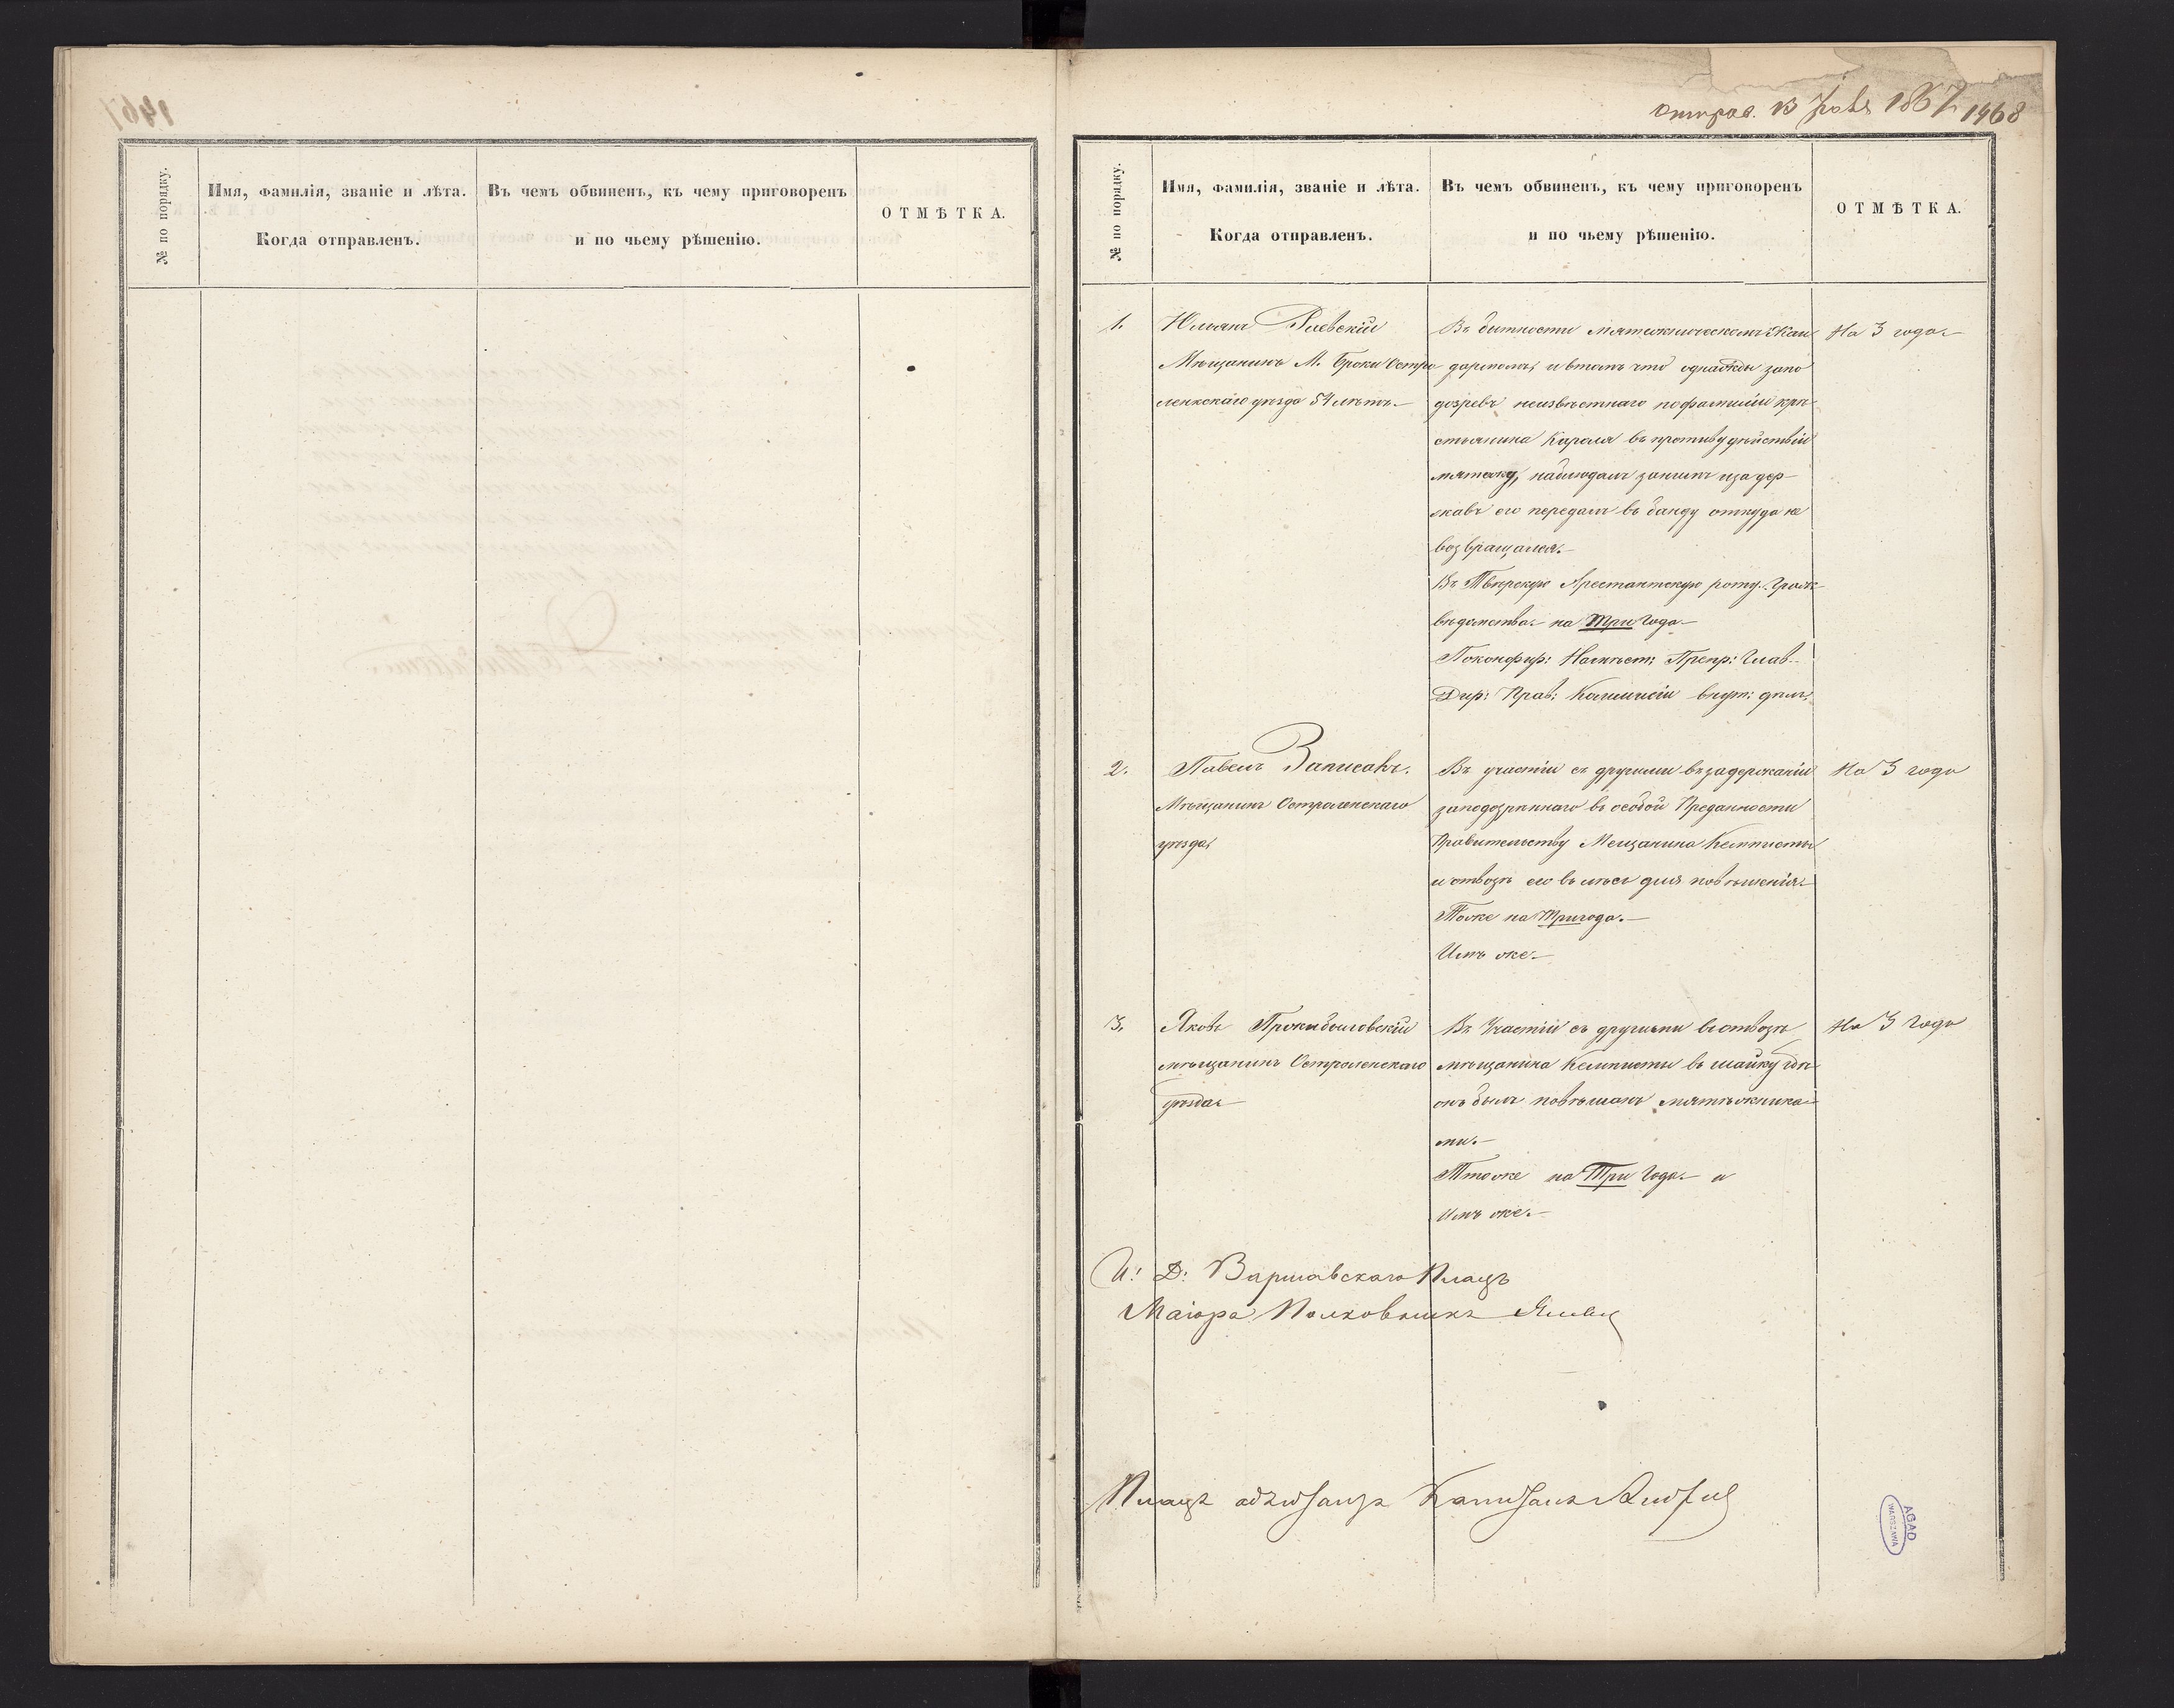 № по порядку.
Имя, фамилія, званіе и лѣта.
Когда отправленъ.
Въ чемъ обвиненъ, къ чему приговоренъ
и по чьему рѣшенію.
ОТМѢТКА.
отправ. 13 1867 1468
№ по порядку.
Имя, фамилія, званіе и лѣта.
Когда отправленъ.
Въ чемъ обвиненъ, къ чему приговоренъ
и по чьему рѣшенію.
ОТМѢТКА.
1.
Юльянъ Раевскій
Мѣщанинъ М. Броки Остро
ленкскаго уѣзда 54 лѣтъ.—
Въ бытности мятежническомъ Жан
дармомъ, и втомъ что однажды запо
дозревъ неизвѣстнаго пофамиліи кре
стьянина Кароля въ противудѣйствіи
мятежу, наблюдалъ занимъ иза дер
жавъ его передалъ въ банду откуда не
возвращался.—
Въ Тверскую Арестантскую роту Граж
вѣдомства на Три года.—
Поконфир: Намѣст: Предсѣ: Глав.
Дир: Прав: Коммисіи внут: дѣлъ.
На 3 года
2.
Павелъ Записакъ.
Мѣщанинъ Остроленскаго
уѣзда
Въ участіи съ другими въ задержаніи
заподозрѣннаго въ особой Преданности
Правительству Мещанина Кемписты
и отвозѣ его въ лѣсъ для повѣшенія.—
Тоже на Три года.—
Имъ же.—
На 3 года
3.
Яковъ
мѣщанинъ Остроленскаго
уѣзда
Въ Участіи съ другими въ отвозѣ
мѣщанина Кемписты въ шайку гдѣ
онъ былъ повѣшанъ мятѣжника
ми.—
Ттоже на Три года.— и
Имъ же.—
На 3 года
И: Д: Варшавскаго Плацъ
Маіора Полковникъ
Плацъ адъютантъ Капитанъ
AGAD
WARSZAWA